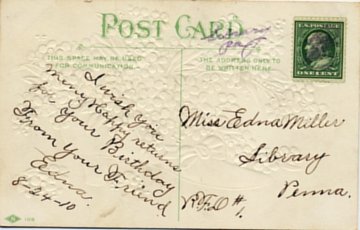 POST CARD
THIS SPACE MAY BE USED
FOR COMMUNICATION.
THE ADDRESS ONLY TO
BE WRITTEN HERE.
U.S. POSTAGE
ONE CENT
I wish you
meny Happy returns
for your Birthday
From your Friend
Edna.
8-24-10
Miss Edna Miller
Library
Penna.
R.F.D #
1.